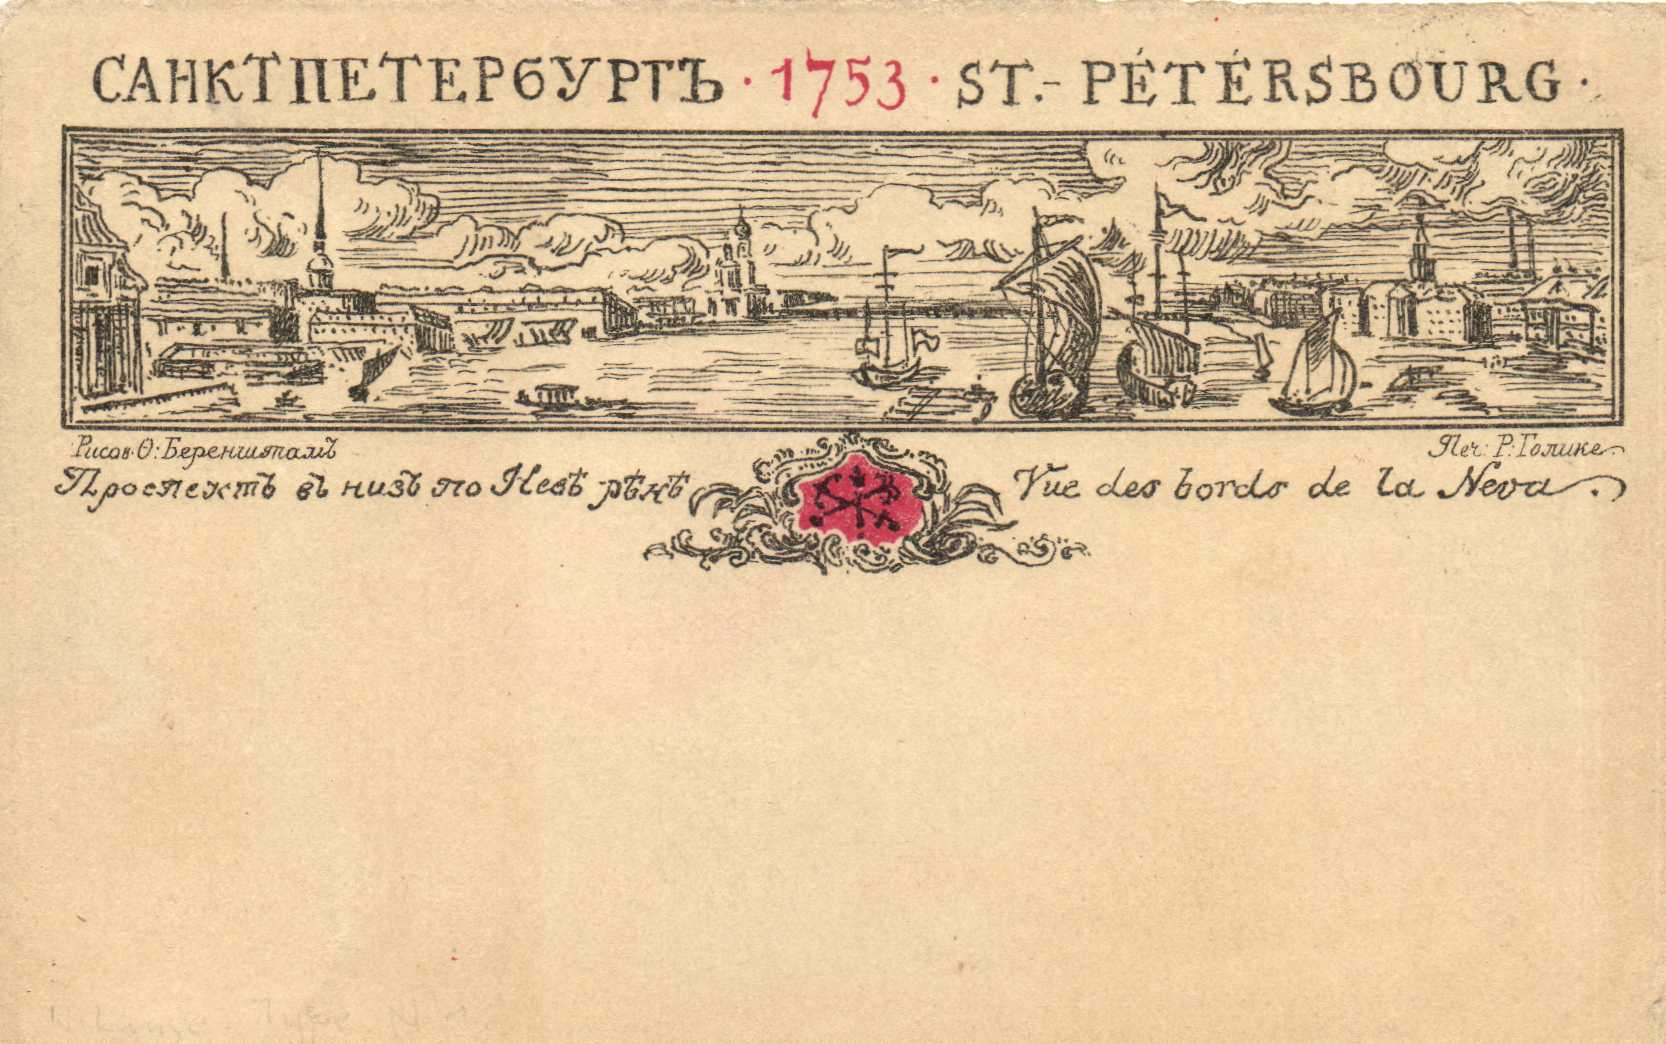 САНКТПЕТЕРБУРГЪ · 1753 · ST.- PÉTÉRSBOURG ·
Рисов. Ѳ: Беренштамъ
Печ: Р: Голике
Проспектъ въ низъ по Невѣ рѣкѣ
Vue des bords de la Neva.